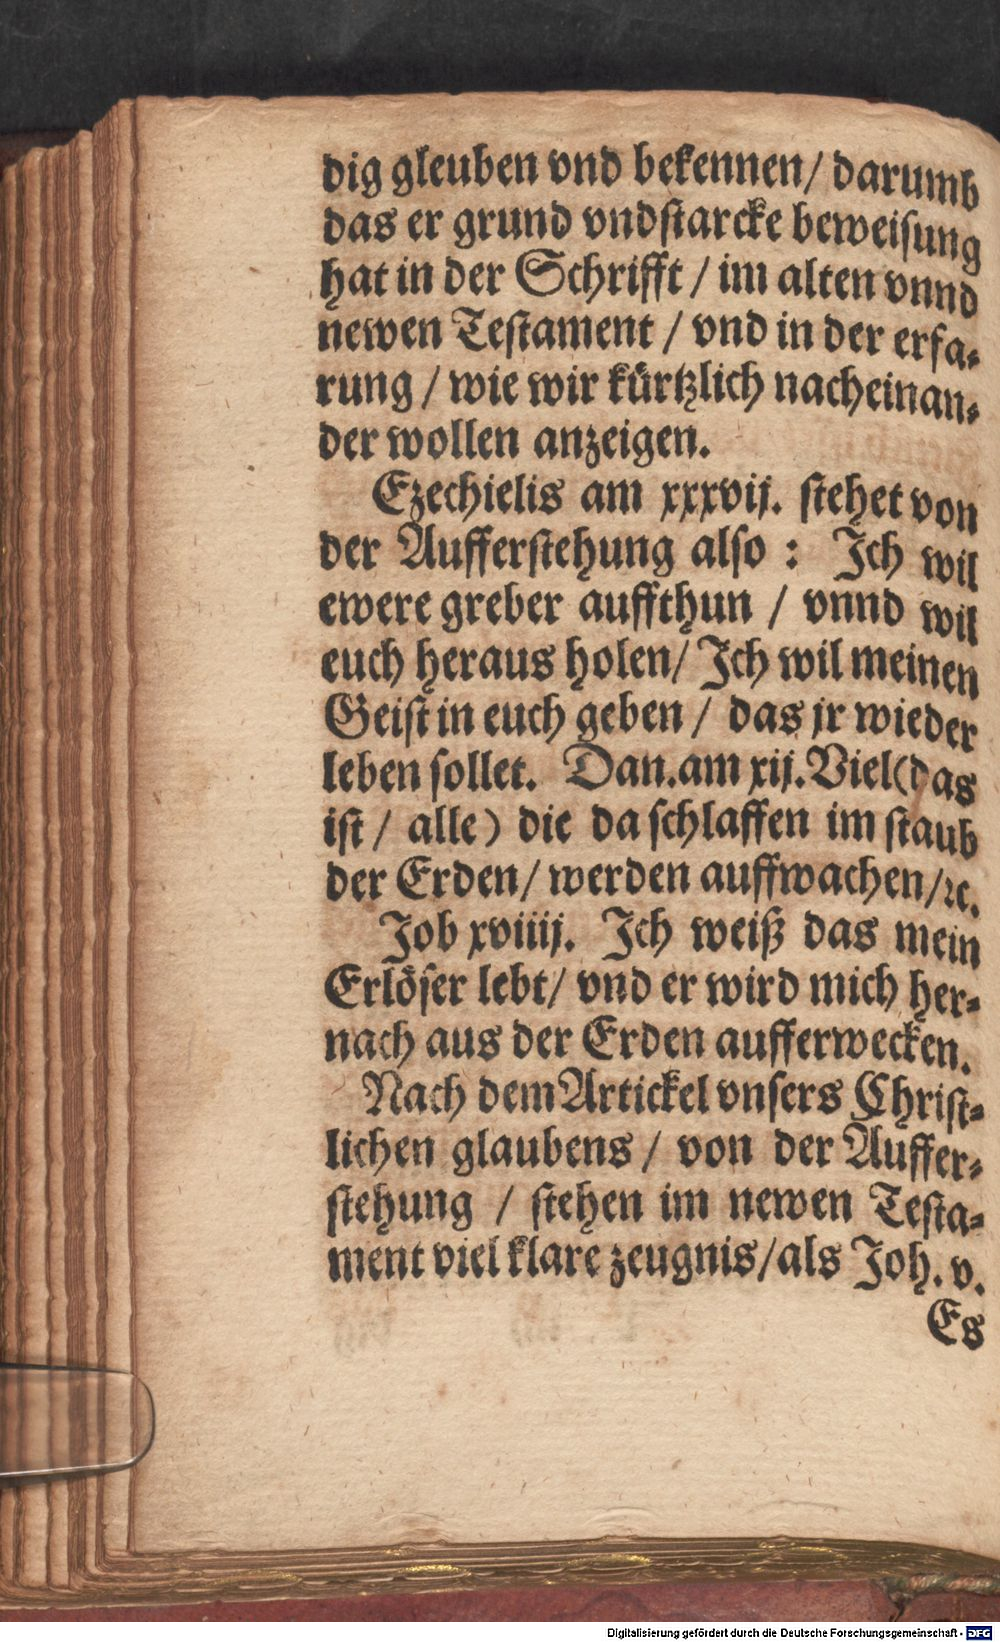 dig gleuben vnd bekennen/ darumb
das er grund vndstarcke beweisung
hat in der Schrifft / im alten vnnd
newen Testament / vnd in der erfa-
rung / wie wir kürtzlich nacheinan-
der wollen anzeigen.
Ezechielis am xxxvij. stehet von
der Aufferstehung also : Ich wil
ewere greber auffthun / vnnd wil
euch heraus holen/ Ich wil meinen
Geist in euch geben / das jr wieder
leben sollet. Dan. am xij. Viel (das
ist / alle) die da schlaffen im staub
der Erden/ werden auffwachen/ ꝛc.
Job xviiij. Ich weiß das mein
Erlöser lebt/ vnd er wird mich her-
nach aus der Erden aufferwecken.
Nach dem Artickel vnsers Christ-
lichen glaubens / von der Auffer-
stehung / stehen im newen Testa-
ment viel klare zeugnis/ als Joh. v.
Es
Digitalisierung gefördert durch die Deutsche Forschungsgemeinschaft - DFG